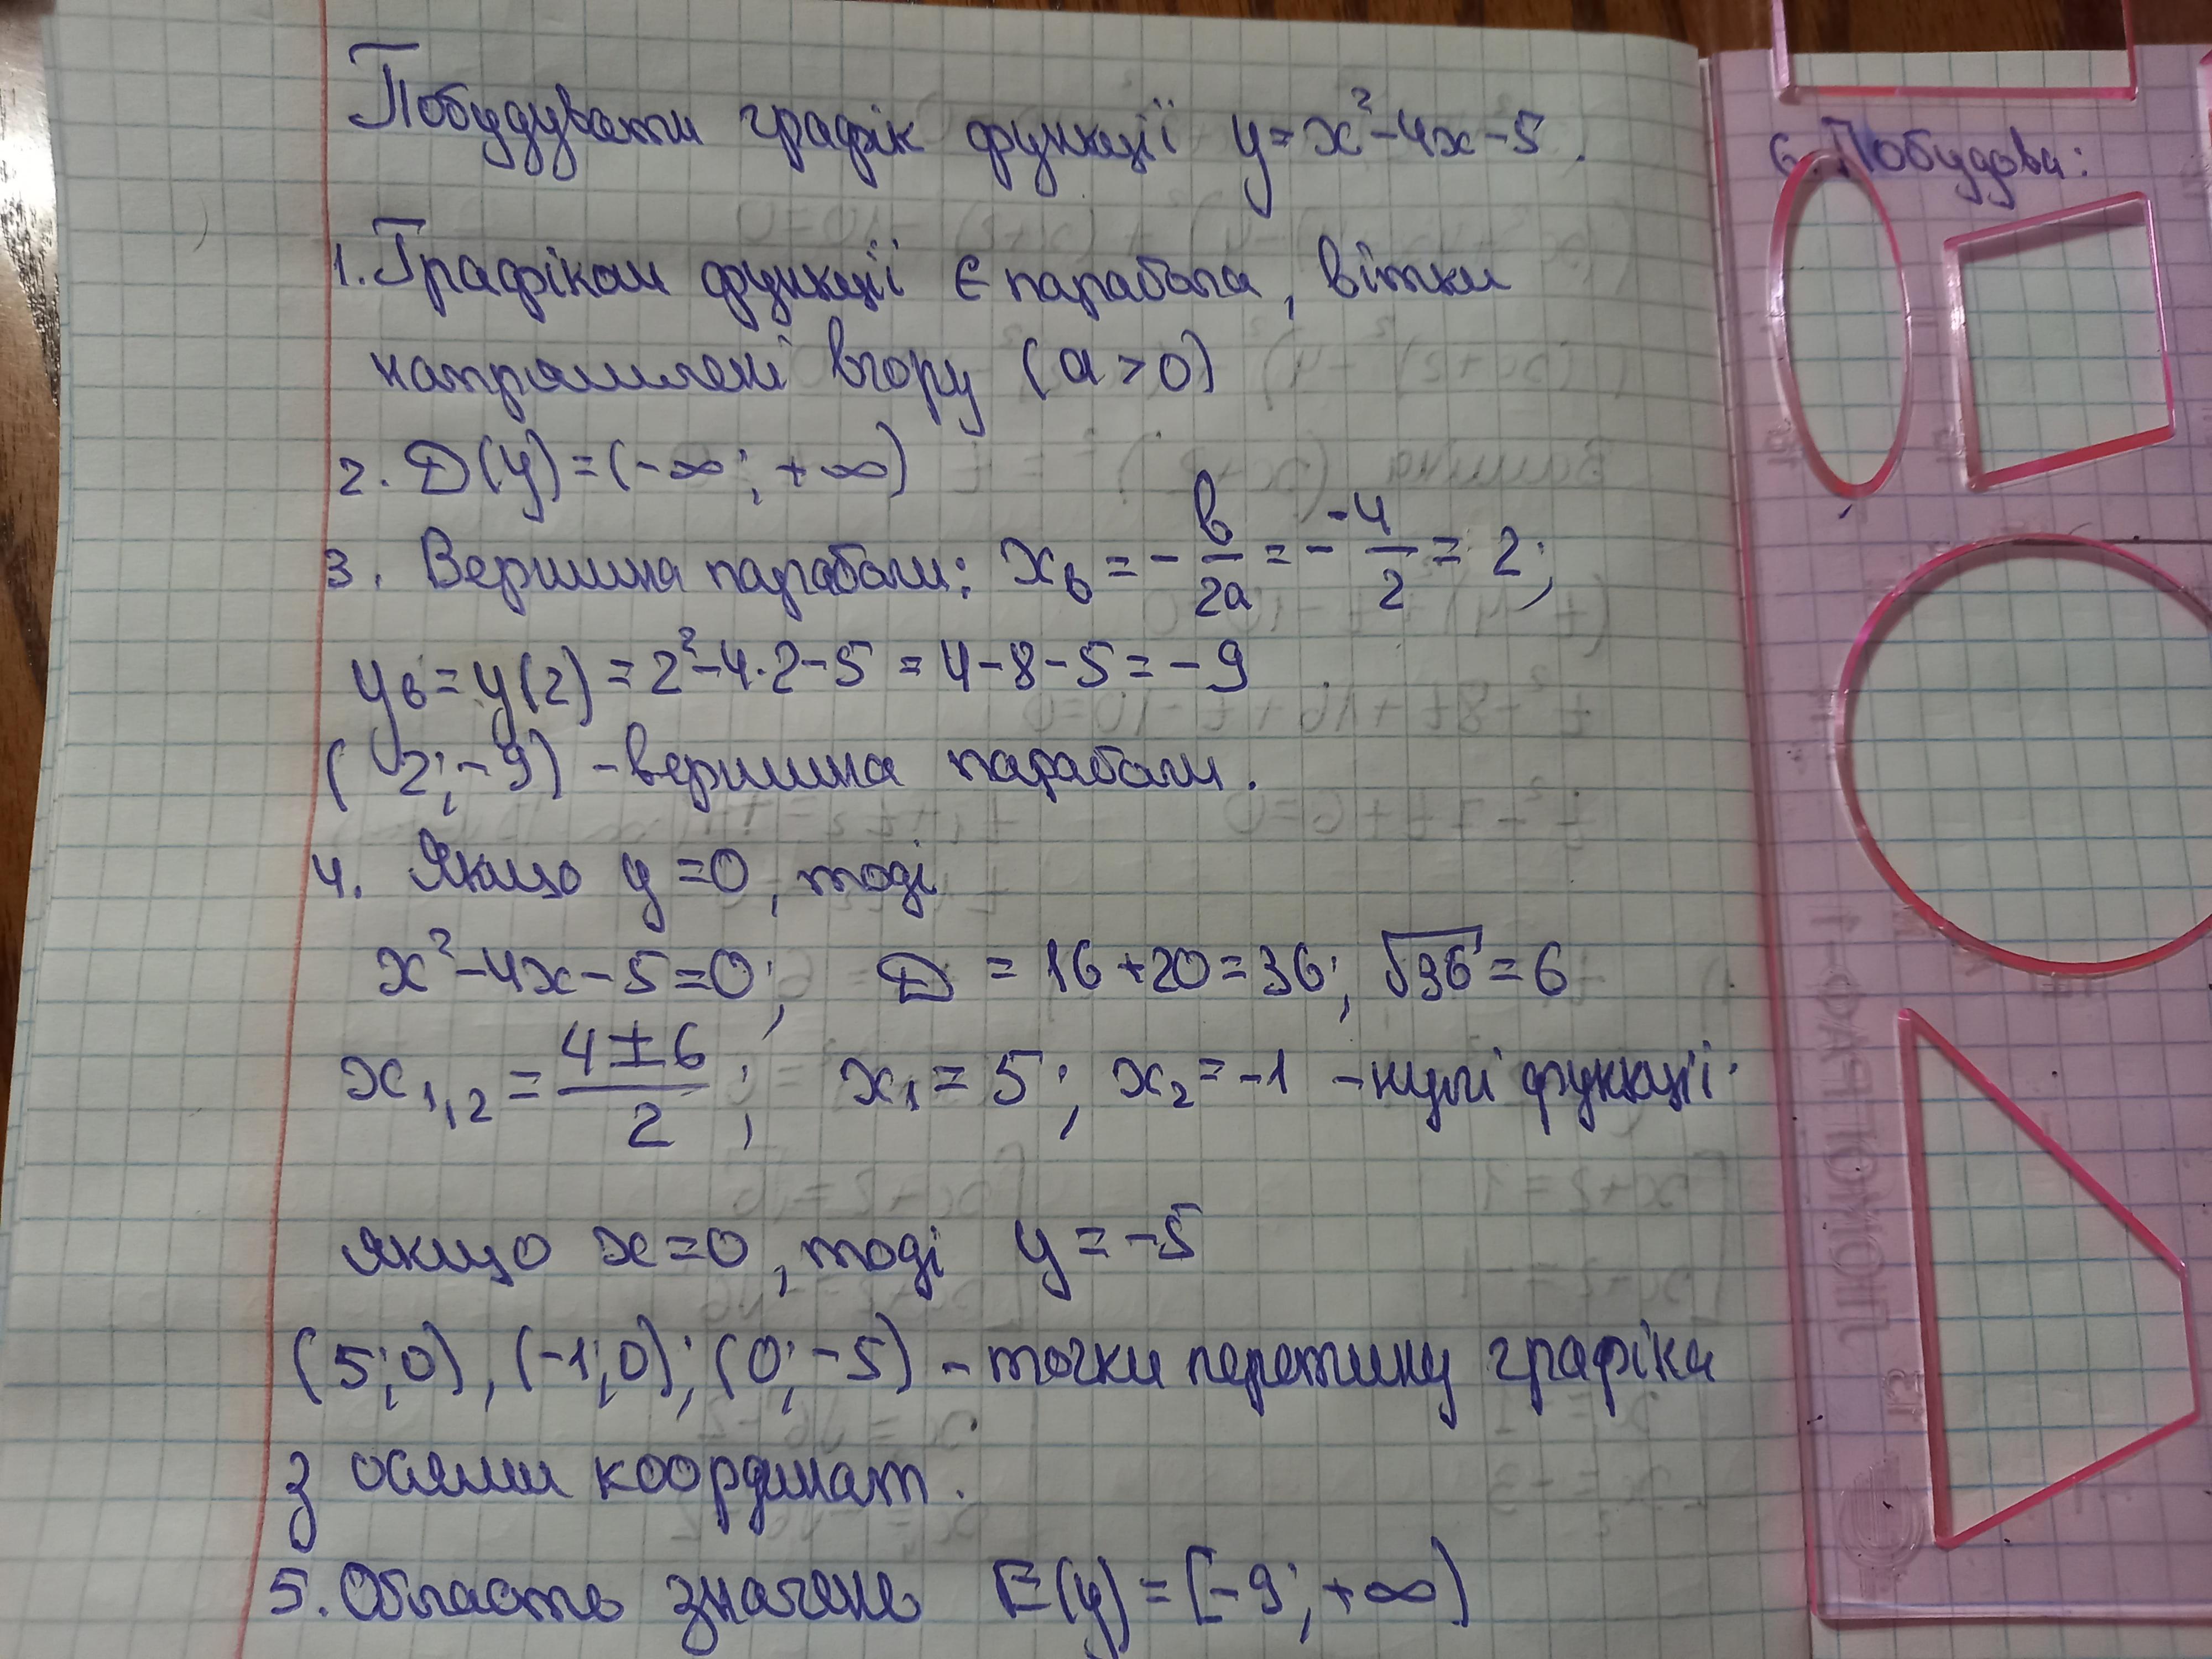 Побудувати графік функції y=x²-4x-5.
1. Графіком функції є парабола, вітки
напрямлені вгору (a>0)
2. D(y)=(-∞; +∞)
3. Вершина параболи: xв = - в/2a = - -4/2 = 2;
yв = y(2) = 2²-4·2-5 = 4-8-5 = -9
(2; -9) - вершина параболи.
4. Якщо y=0, тоді
x²-4x-5=0; D = 16+20=36; √36=6
x1,2 = (4±6)/2; x1 = 5; x2 = -1 - нулі функції.
якщо x=0, тоді y=-5
(5;0), (-1;0); (0;-5) - точки перетину графіка
з осями координат.
5. Область значень E(y)=[-9; +∞)
6. Побудова: